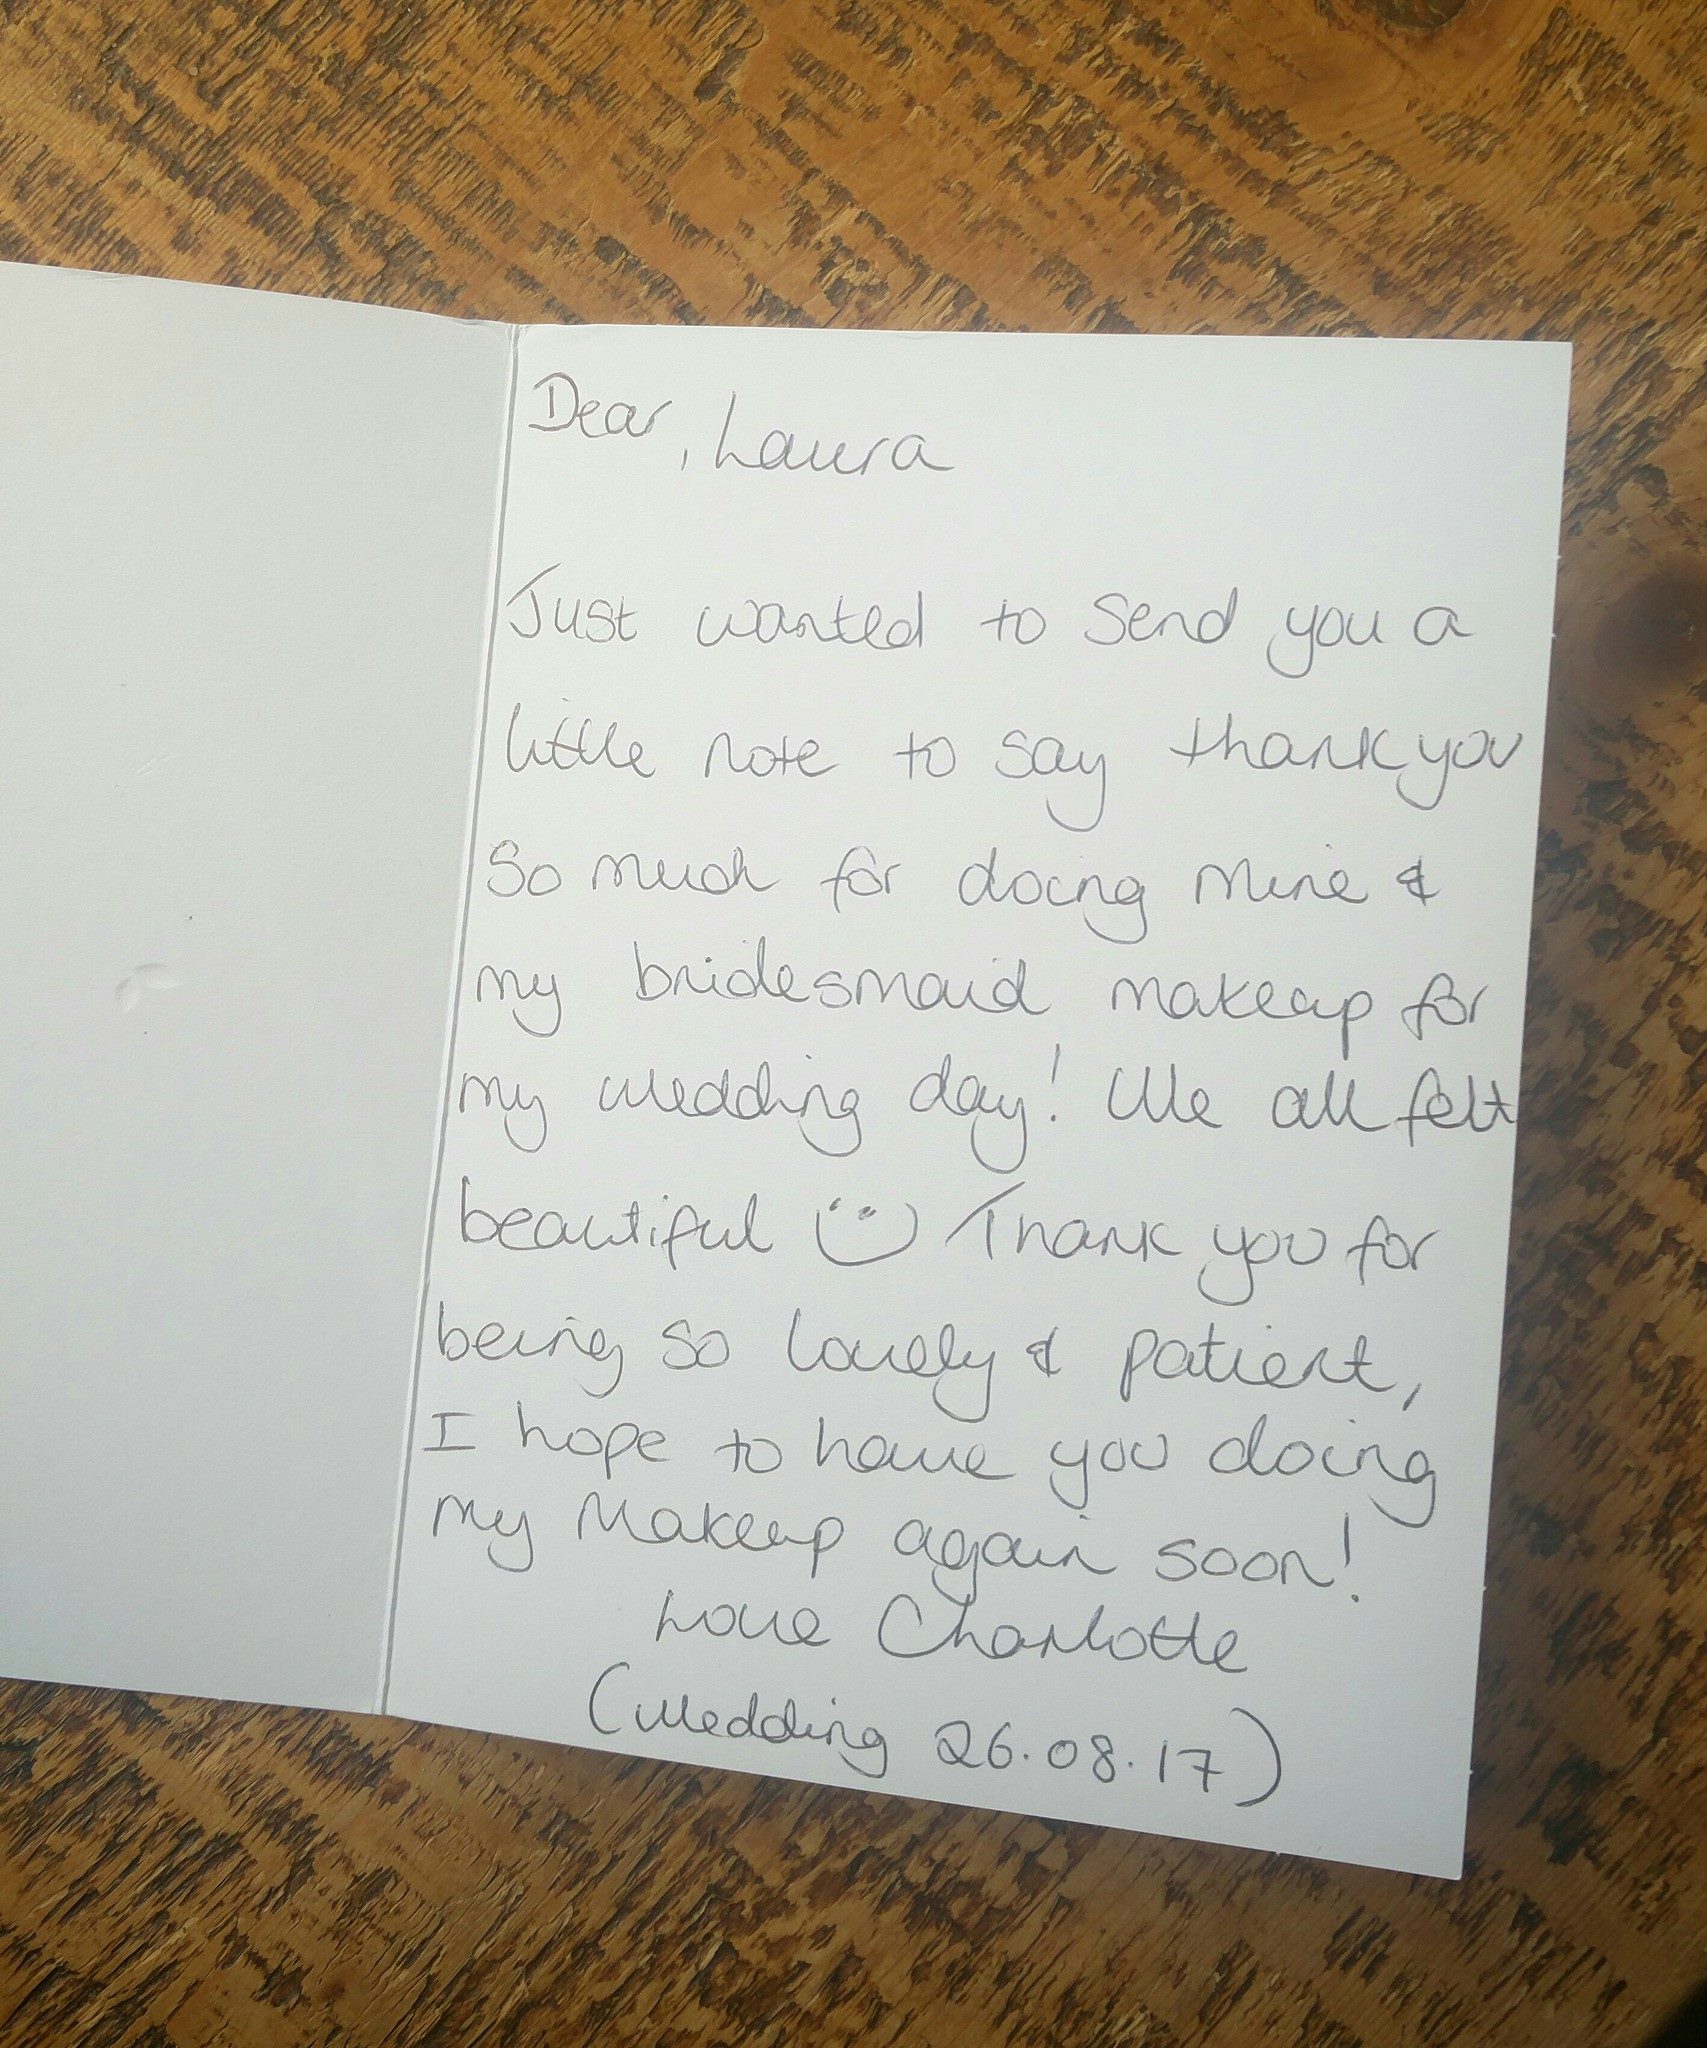 Dear, Laura
Just wanted to send you a
little note to say thank you
So much for doing mine &
my bridesmaid makeup for
my wedding day! We all felt
beautiful :) Thank you for
being so lovely & patient,
I hope to have you doing
my Makeup again soon!
Love Charlotte
(Wedding 26.08.17)